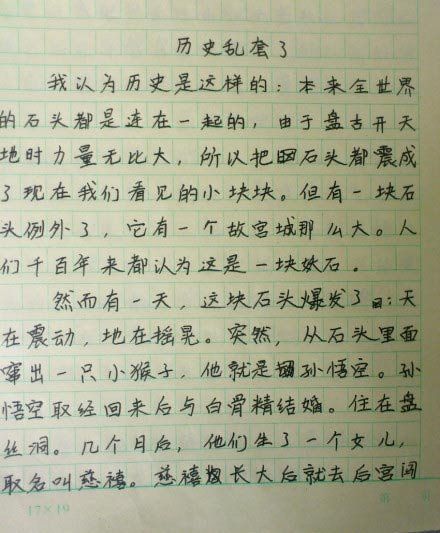 历史乱套了
我认为历史是这样的：本来全世界
的石头都是连在一起的，由于盘古开天
地时力量无比大，所以把石头都震成
了现在我们看见的小块块。但有一块石
头例外了，它有一个故宫城那么大。人
们千百年来都认为这是一块妖石。
然而有一天，这块石头爆发了：天
在震动，地在摇晃。突然，从石头里面
窜出一只小猴子，他就是孙悟空。孙
悟空取经回来后与白骨精结婚。住在盘
丝洞。几个月后，他们生了一个女儿，
取名叫慈禧。慈禧长大后就去后宫闯
17×19 第 页